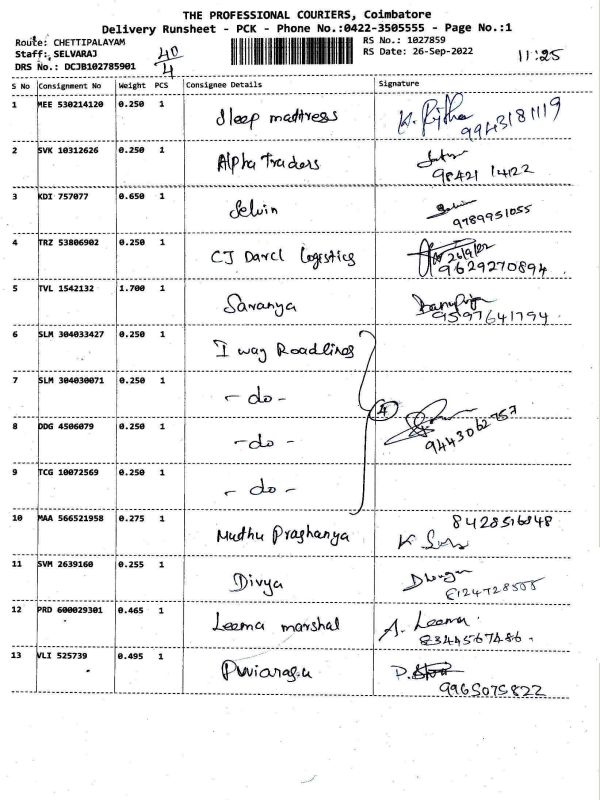 THE PROFESSIONAL COURIERS, Coimbatore
Delivery Runsheet - PCK - Phone No.:0422-3505555 - Page No.:1
Route: CHETTIPALAYAM 40/4 RS No.: 1027859
Staff: SELVARAJ RS Date: 26-Sep-2022 11:25
DRS No.: DCJB102785901
S No Consignment No Weight PCS Consignee Details Signature
1 MEE 530214120 0.250 1 Sleep mattress 9943181119
2 SVK 10312626 0.250 1 Alpha Traders 98421 14122
3 KDI 757077 0.650 1 Selvin 9789951055
4 TRZ 53806902 0.250 1 CJ Darcl Logistics 26/9/22 9629270894
5 TVL 1542132 1.700 1 Saranya 9597641794
6 SLM 304033427 0.250 1 I way Roadlines
7 SLM 304030071 0.250 1 - do - 4
8 DDG 4506079 0.250 1 - do - 9443062757
9 TCG 10072569 0.250 1 - do -
10 MAA 566521958 0.275 1 Muthu Praghanya 8428516848
11 SVM 2639160 0.255 1 Divya 8124728505
12 PRD 600029301 0.465 1 Leema marshal A. Leema. 8344567486.
13 VLI 525739 0.495 1 9965075822